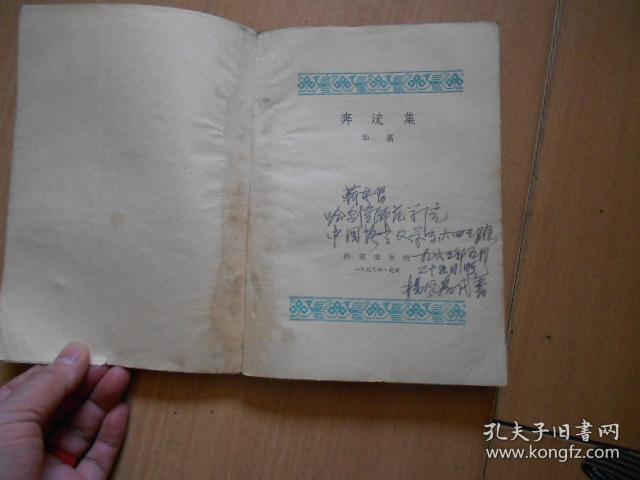 奔流集
华嘉
哈尔滨师范学院
中国语言文学系六四三班
作家出版社
一九六三年五月
一九五九年·北京
二十五日晚
孔夫子旧书网
www.kongfz.com